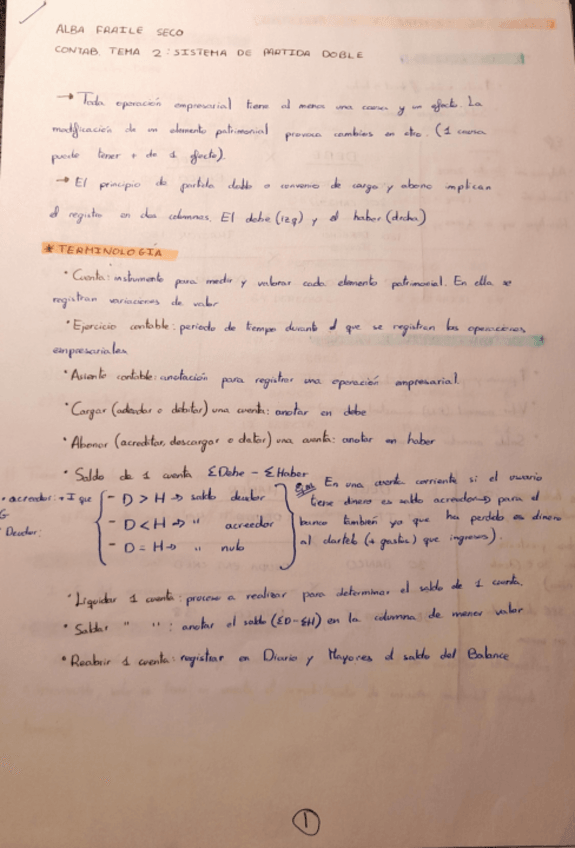 ALBA FRAILE SECO
CONTAB. TEMA 2: SISTEMA DE PARTIDA DOBLE
→ Toda operación empresarial tiene al menos una causa y un efecto. La
modificación de un elemento patrimonial provoca cambios en otro. (1 causa
puede tener + de 1 efecto).
→ El principio de partida doble o convenio de cargo y abono implican
el registro en dos columnas. El debe (izq) y el haber (drcha)
* TERMINOLOGÍA
• Cuenta: instrumento para medir y valorar cada elemento patrimonial. En ella se
registran variaciones de valor
• Ejercicio contable: periodo de tiempo durante el que se registran las operaciones
empresariales
• Asiento contable: anotación para registrar una operación empresarial.
• Cargar (adeudar o debitar) una cuenta: anotar en debe
• Abonar (acreditar, descargar o datar) una cuenta: anotar en haber
• Saldo de 1 cuenta ΣDebe - ΣHaber
• acreedor: + I que
G
Deudor:
- D > H → saldo deudor
- D < H → " acreedor
- D = H → " nulo
En una cuenta corriente si el usuario
tiene dinero es saldo acreedor → para el
banco también ya que ha perdido es dinero
al dártelo (+ gastos) que ingresos).
• Liquidar 1 cuenta: proceso a realizar para determinar el saldo de 1 cuenta.
• Saldar " " : anotar el saldo (ΣD-ΣH) en la columna de menor valor
• Reabrir 1 cuenta: registrar en Diario y Mayores el saldo del Balance
1